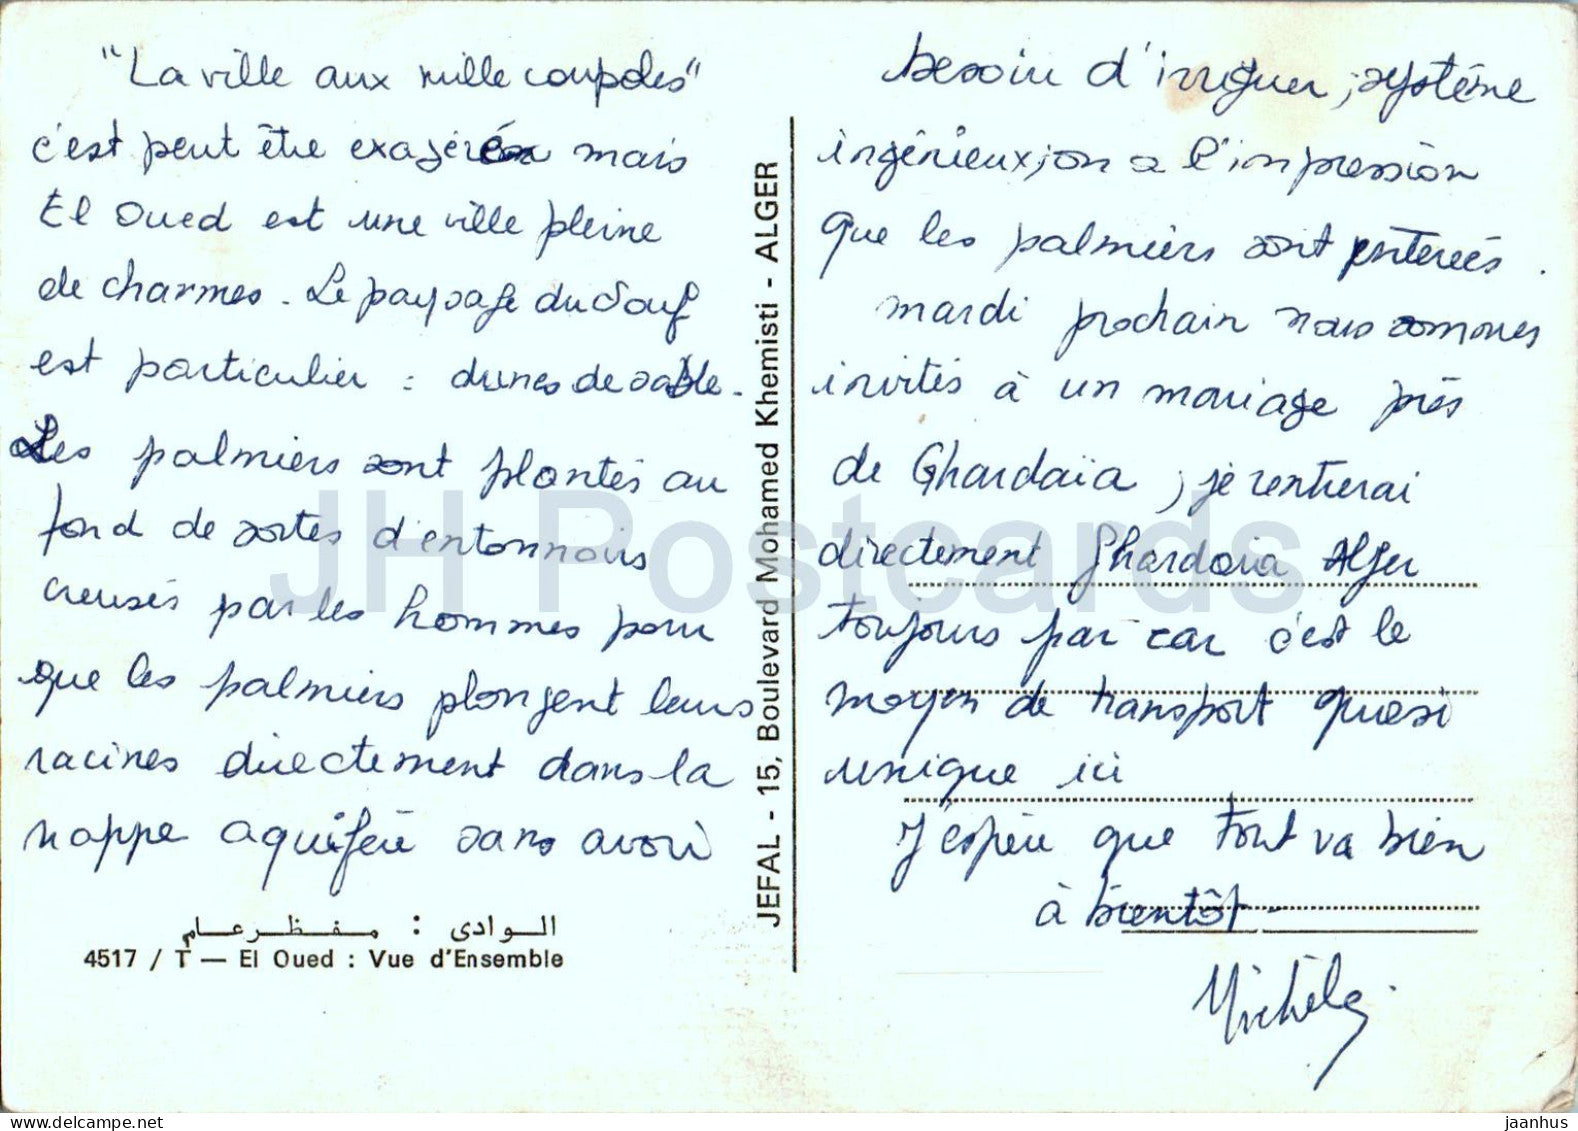 "La ville aux mille coupoles"
c'est peut être exagéré mais
El Oued est une ville pleine
de charmes. Le paysage du Souf
est particulier : dunes de sable.
Les palmiers sont plantés au
fond de sortes d'entonnoirs
creusés par les hommes pour
que les palmiers plongent leurs
racines directement dans la
nappe aquifère sans avoir
الوادى : منظر عام
4517 / T — El Oued : Vue d'Ensemble
JEFAL - 15, Boulevard Mohamed Khemisti - ALGER
besoin d'irriguer ; système
ingénieux ; on a l'impression
que les palmiers sont enterrés.
mardi prochain nous sommes
invités à un mariage près
de Ghardaïa ; je rentrerai
directement Ghardaia Alger
toujours par car c'est le
moyen de transport quasi
unique ici
J'espère que tout va bien
à bientôt.
Michèle
JH Postcards
jaanhus
www.delcampe.net